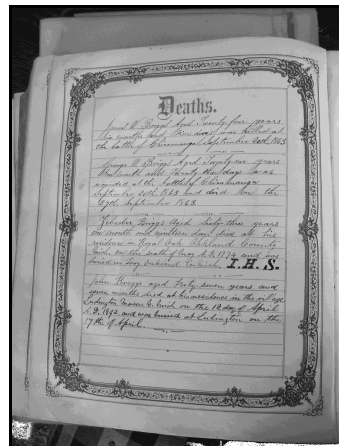 Deaths.
W. Briggs Aged Twenty four years
six months and days was killed at
the battle of Chicamauga September 20th 1863
George W Briggs Aged Twenty one years
one month and twenty three days was
wounded at the Battle of Chicamauga
September 20th 1863 and died on the
27th September 1863.
Briggs Aged Sixty three years
one month and nineteen days died at his
residence in Royal Oak Oakland County
Mich. on the of May A.D. 1874 and was
buried in Troy Oakland Co. Mich. I.H.S.
John Briggs aged forty seven years and
seven months died at his residence in the village
Ludington Mason Co. Mich on the 12 day of April
A.D. 1892 and was buried at Ludington on the
17th of April.